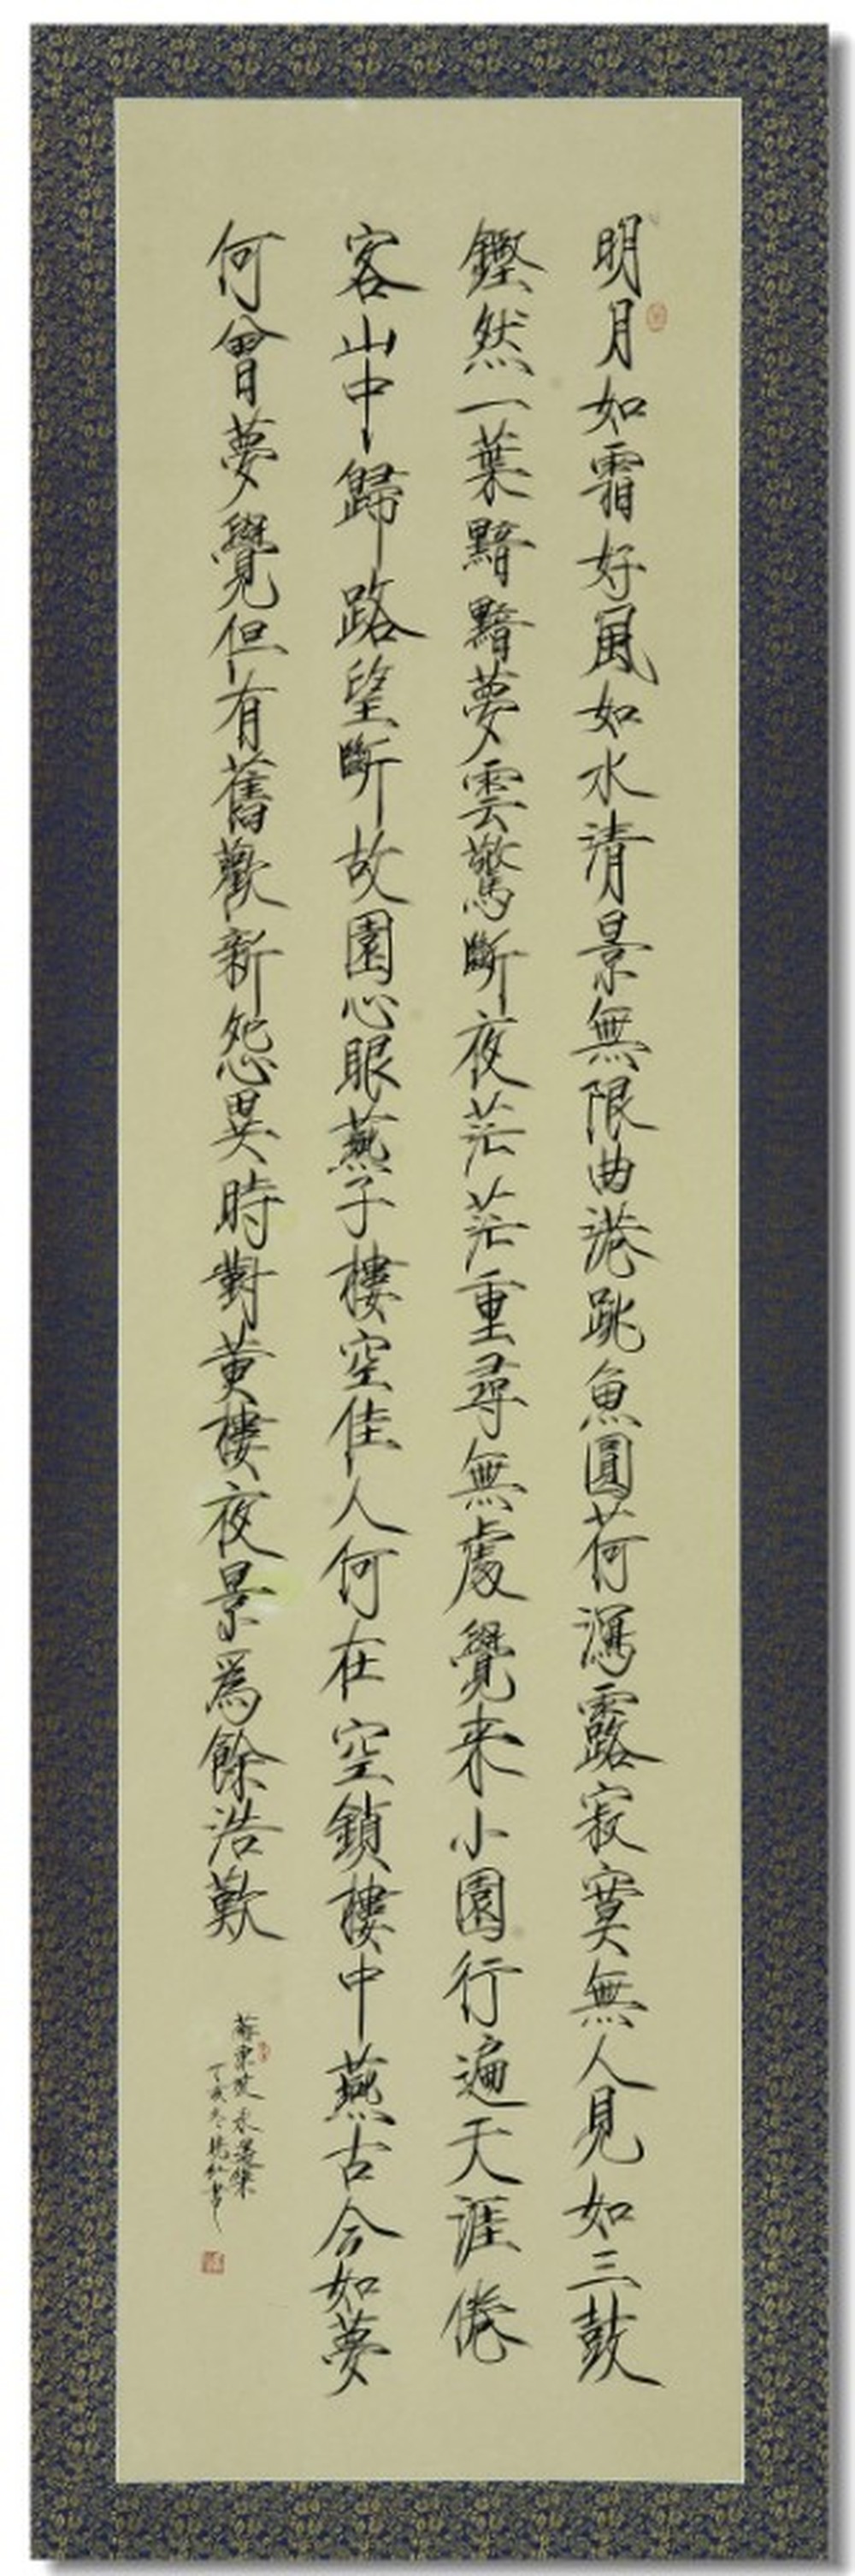 明月如霜好風如水清景無限曲港跳魚圓荷瀉露寂寞無人見如三鼓
鏗然一葉黯黯夢雲驚斷夜茫茫重尋無處覺来小園行遍天涯倦
客山中歸路望斷故園心眼燕子樓空佳人何在空鎖樓中燕古今如夢
何曾夢覺但有舊歡新怨異時對黃樓夜景為餘浩歎
蘇東坡永遇樂
丁亥冬 書